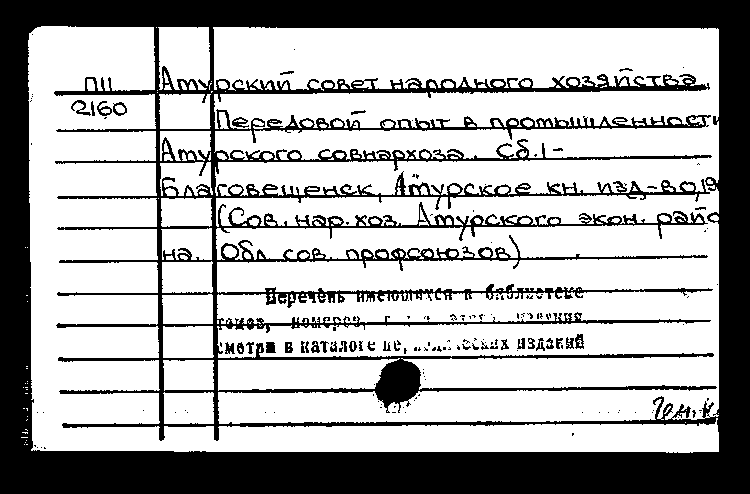 ПII Амурский совет народного хозяйства.
2160
Передовой опыт в промышленности
Амурского совнархоза. Сб.1-
Благовещенск, Амурское кн. изд-во,19
(Сов. нар. хоз. Амурского экон. райо
на. Обл сов. профсоюзов)
Перечень имеющихся в библиотеке
томов, номеров, этого издания
смотри в каталоге периодических изданий
Ген. к